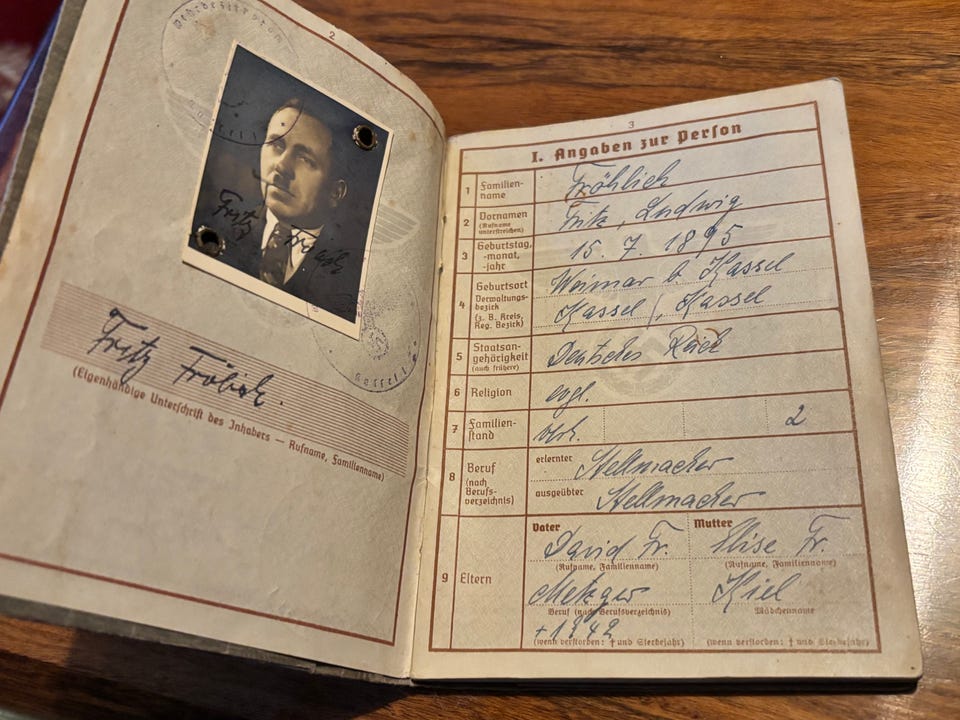 2
Fritz Fröhlich
Fritz Fröhlich.
(Eigenhändige Unterschrift des Inhabers — Rufname, Familienname)
3
I. Angaben zur Person
1 Familien-
name
Fröhlich
2 Vornamen
(Rufname
unterstreichen)
Fritz, Ludwig
3 Geburtstag,
-monat,
-jahr
15. 7. 1895
4 Geburtsort
Verwaltungs-
bezirk
(z. B. Kreis,
Reg. Bezirk)
Weimar b. Kassel
Kassel, Kassel
5 Staatsan-
gehörigkeit
(auch frühere)
Deutsches Reich
6 Religion
evgl.
7 Familien-
stand
verh. 2
8 Beruf
(nach
Berufs-
verzeichnis)
erlernter Stellmacher
ausgeübter Stellmacher
9 Eltern
Vater Mutter
David Fr. Elise Fr.
(Rufname, Familienname) (Rufname, Familienname)
Metzger Kiel
Beruf (nach Berufsverzeichnis) Mädchenname
+ 1942
(wenn verstorben: † und Sterbejahr) (wenn verstorben: † und Sterbejahr)